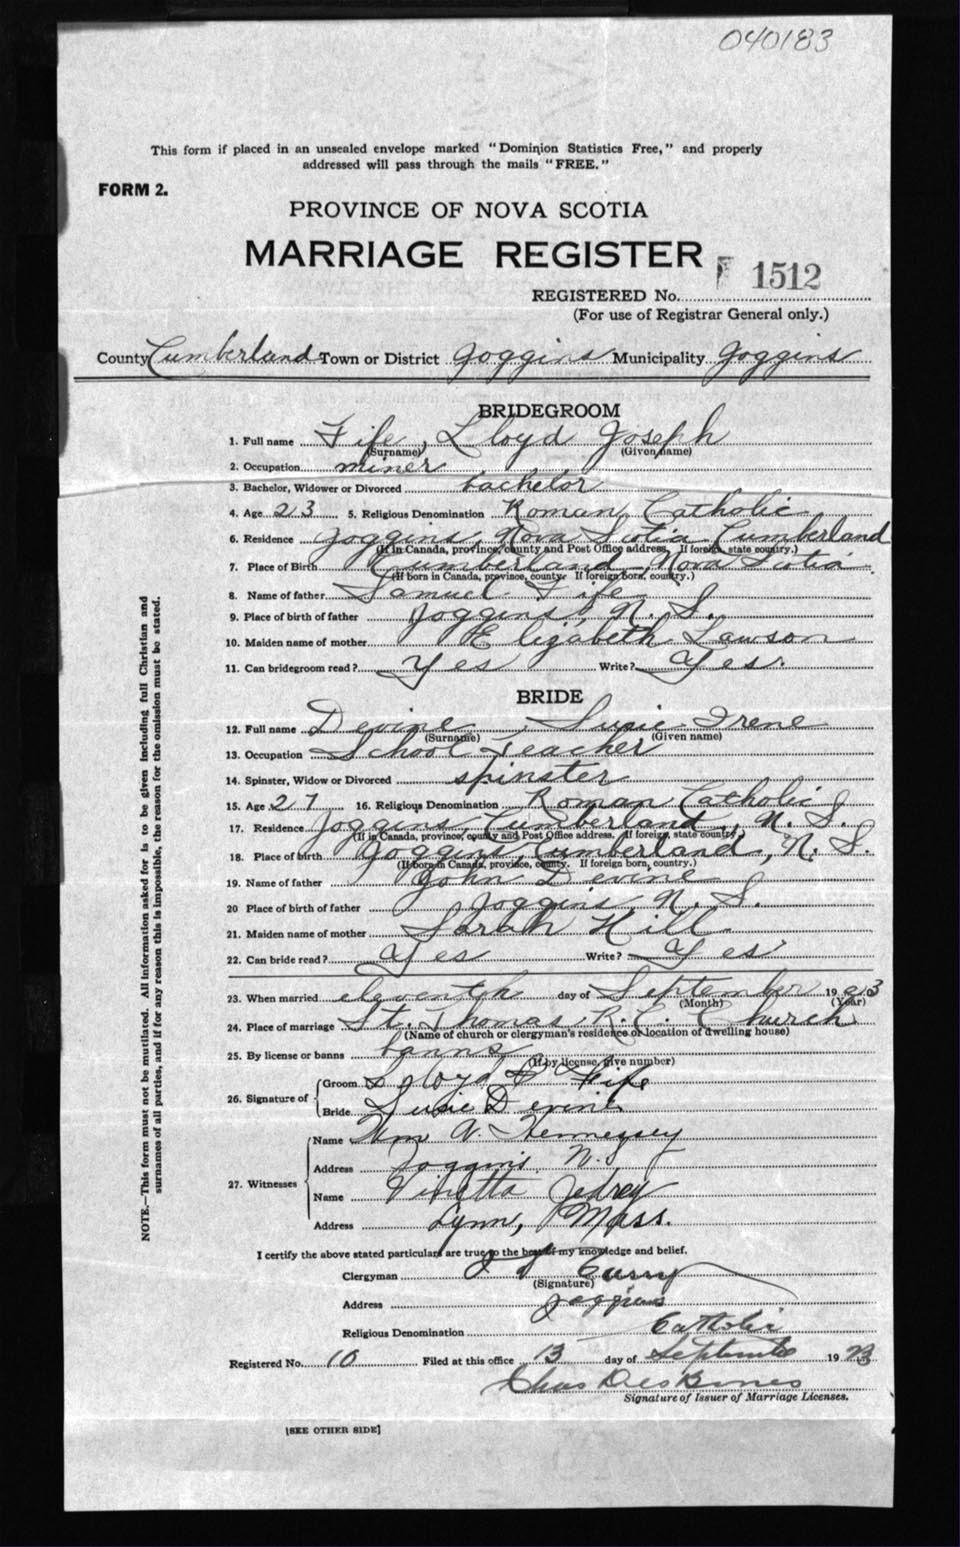 040183
This form if placed in an unsealed envelope marked "Dominion Statistics Free," and properly
addressed will pass through the mails "FREE."
FORM 2.
PROVINCE OF NOVA SCOTIA
MARRIAGE REGISTER
REGISTERED No. 1512
(For use of Registrar General only.)
County Cumberland Town or District Joggins Municipality Joggins
BRIDEGROOM
1. Full name Fife, Lloyd Joseph
(Surname) (Given name)
2. Occupation miner
3. Bachelor, Widower or Divorced bachelor
4. Age 23 5. Religious Denomination Roman Catholic
6. Residence Joggins, Nova Scotia Cumberland
(If in Canada, province, county and Post Office address. If foreign, state country.)
7. Place of Birth Cumberland, Nova Scotia
(If born in Canada, province, county. If foreign born, country.)
8. Name of father Samuel Fife
9. Place of birth of father Joggins, N. S.
10. Maiden name of mother Elizabeth Lawson
11. Can bridegroom read? Yes Write? Yes.
BRIDE
12. Full name Devine, Susie Irene
(Surname) (Given name)
13. Occupation School Teacher
14. Spinster, Widow or Divorced spinster
15. Age 27 16. Religious Denomination Roman Catholic
17. Residence Joggins, Cumberland, N. S.
(If in Canada, province, county and Post Office address. If foreign, state country)
18. Place of birth Joggins, Cumberland, N. S.
(If born in Canada, province, county. If foreign born, country.)
19. Name of father John Devine
20 Place of birth of father Joggins N. S.
21. Maiden name of mother Sarah Hill
22. Can bride read? Yes Write? Yes
23. When married eleventh day of September 1923
(Month) (Year)
24. Place of marriage St. Thomas R. C. Church
(Name of church or clergyman's residence or location of dwelling house)
25. By license or banns banns
(If by license, give number)
26. Signature of Groom Lloyd J Fife
Bride Susie Devine
27. Witnesses Name Wm A. Hennessey
Address Joggins N.S
Name Jedrey
Address Lynn, Mass.
I certify the above stated particulars are true to the best of my knowledge and belief.
Clergyman Curry
(Signature)
Address Joggins
Religious Denomination Catholic
Registered No. 10 Filed at this office 13 day of September 1923
Chas DesBarres
Signature of Issuer of Marriage Licenses.
[SEE OTHER SIDE]
NOTE.—This form must not be mutilated. All information asked for is to be given including full Christian and
surnames of all parties, and if for any reason this is impossible, the reason for the omission must be stated.